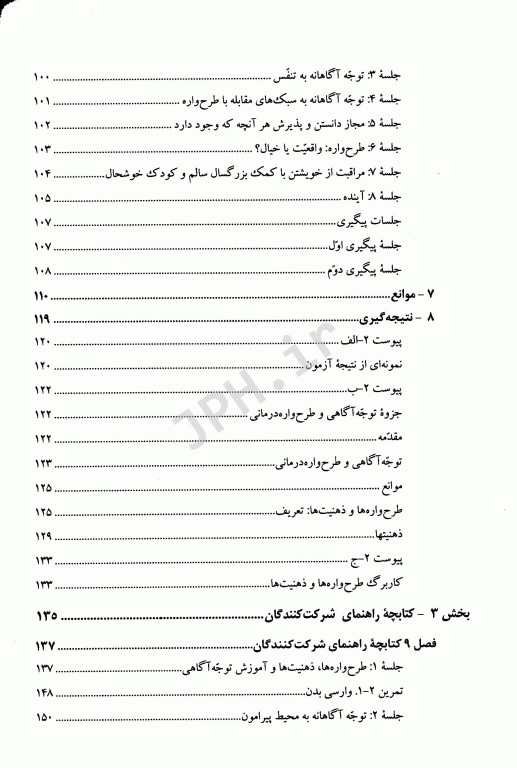 جلسهٔ ۳: توجّه آگاهانه به تنفّس ........ ۱۰۰
جلسهٔ ۴: توجّه آگاهانه به سبک‌های مقابله با طرح‌واره ........ ۱۰۱
جلسهٔ ۵: مجاز دانستن و پذیرش هر آنچه که وجود دارد ........ ۱۰۲
جلسهٔ ۶: طرح‌واره: واقعیّت یا خیال؟ ........ ۱۰۳
جلسهٔ ۷: مراقبت از خویشتن با کمک بزرگسال سالم و کودک خوشحال ........ ۱۰۴
جلسهٔ ۸: آینده ........ ۱۰۵
جلسات پیگیری ........ ۱۰۷
جلسهٔ پیگیری اوّل ........ ۱۰۷
جلسهٔ پیگیری دوّم ........ ۱۰۸
۷ - موانع ........ ۱۱۰
۸ - نتیجه‌گیری ........ ۱۱۹
پیوست ۲-الف ........ ۱۲۰
نمونه‌ای از نتیجهٔ آزمون ........ ۱۲۰
پیوست ۲-ب ........ ۱۲۲
جزوهٔ توجّه‌آگاهی و طرح‌واره‌درمانی ........ ۱۲۲
مقدّمه ........ ۱۲۲
توجّه‌آگاهی و طرح‌واره‌درمانی ........ ۱۲۳
موانع ........ ۱۲۵
طرح‌واره‌ها و ذهنیت‌ها: تعریف ........ ۱۲۵
ذهنیتها ........ ۱۲۹
پیوست ۲-ج ........ ۱۳۳
کاربرگ طرح‌واره‌ها و ذهنیت‌ها ........ ۱۳۳
بخش ۳ - کتابچهٔ راهنمای شرکت‌کنندگان ........ ۱۳۵
فصل ۹ کتابچهٔ راهنمای شرکت‌کنندگان ........ ۱۳۷
جلسهٔ ۱: طرح‌واره‌ها، ذهنیت‌ها و آموزش توجّه‌آگاهی ........ ۱۳۷
تمرین ۲-۱. وارسی بدن ........ ۱۴۸
جلسهٔ ۲: توجّه آگاهانه به محیط پیرامون ........ ۱۵۰
JPH.ir